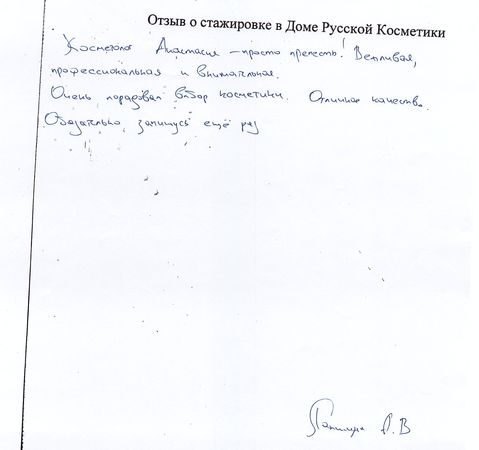 Отзыв о стажировке в Доме Русской Косметики
Косметолог Анастасия – просто прелесть! Вежливая,
профессиональная и внимательная.
Очень порадовал выбор косметики. Отличное качество.
Обязательно запишусь ещё раз
А.В